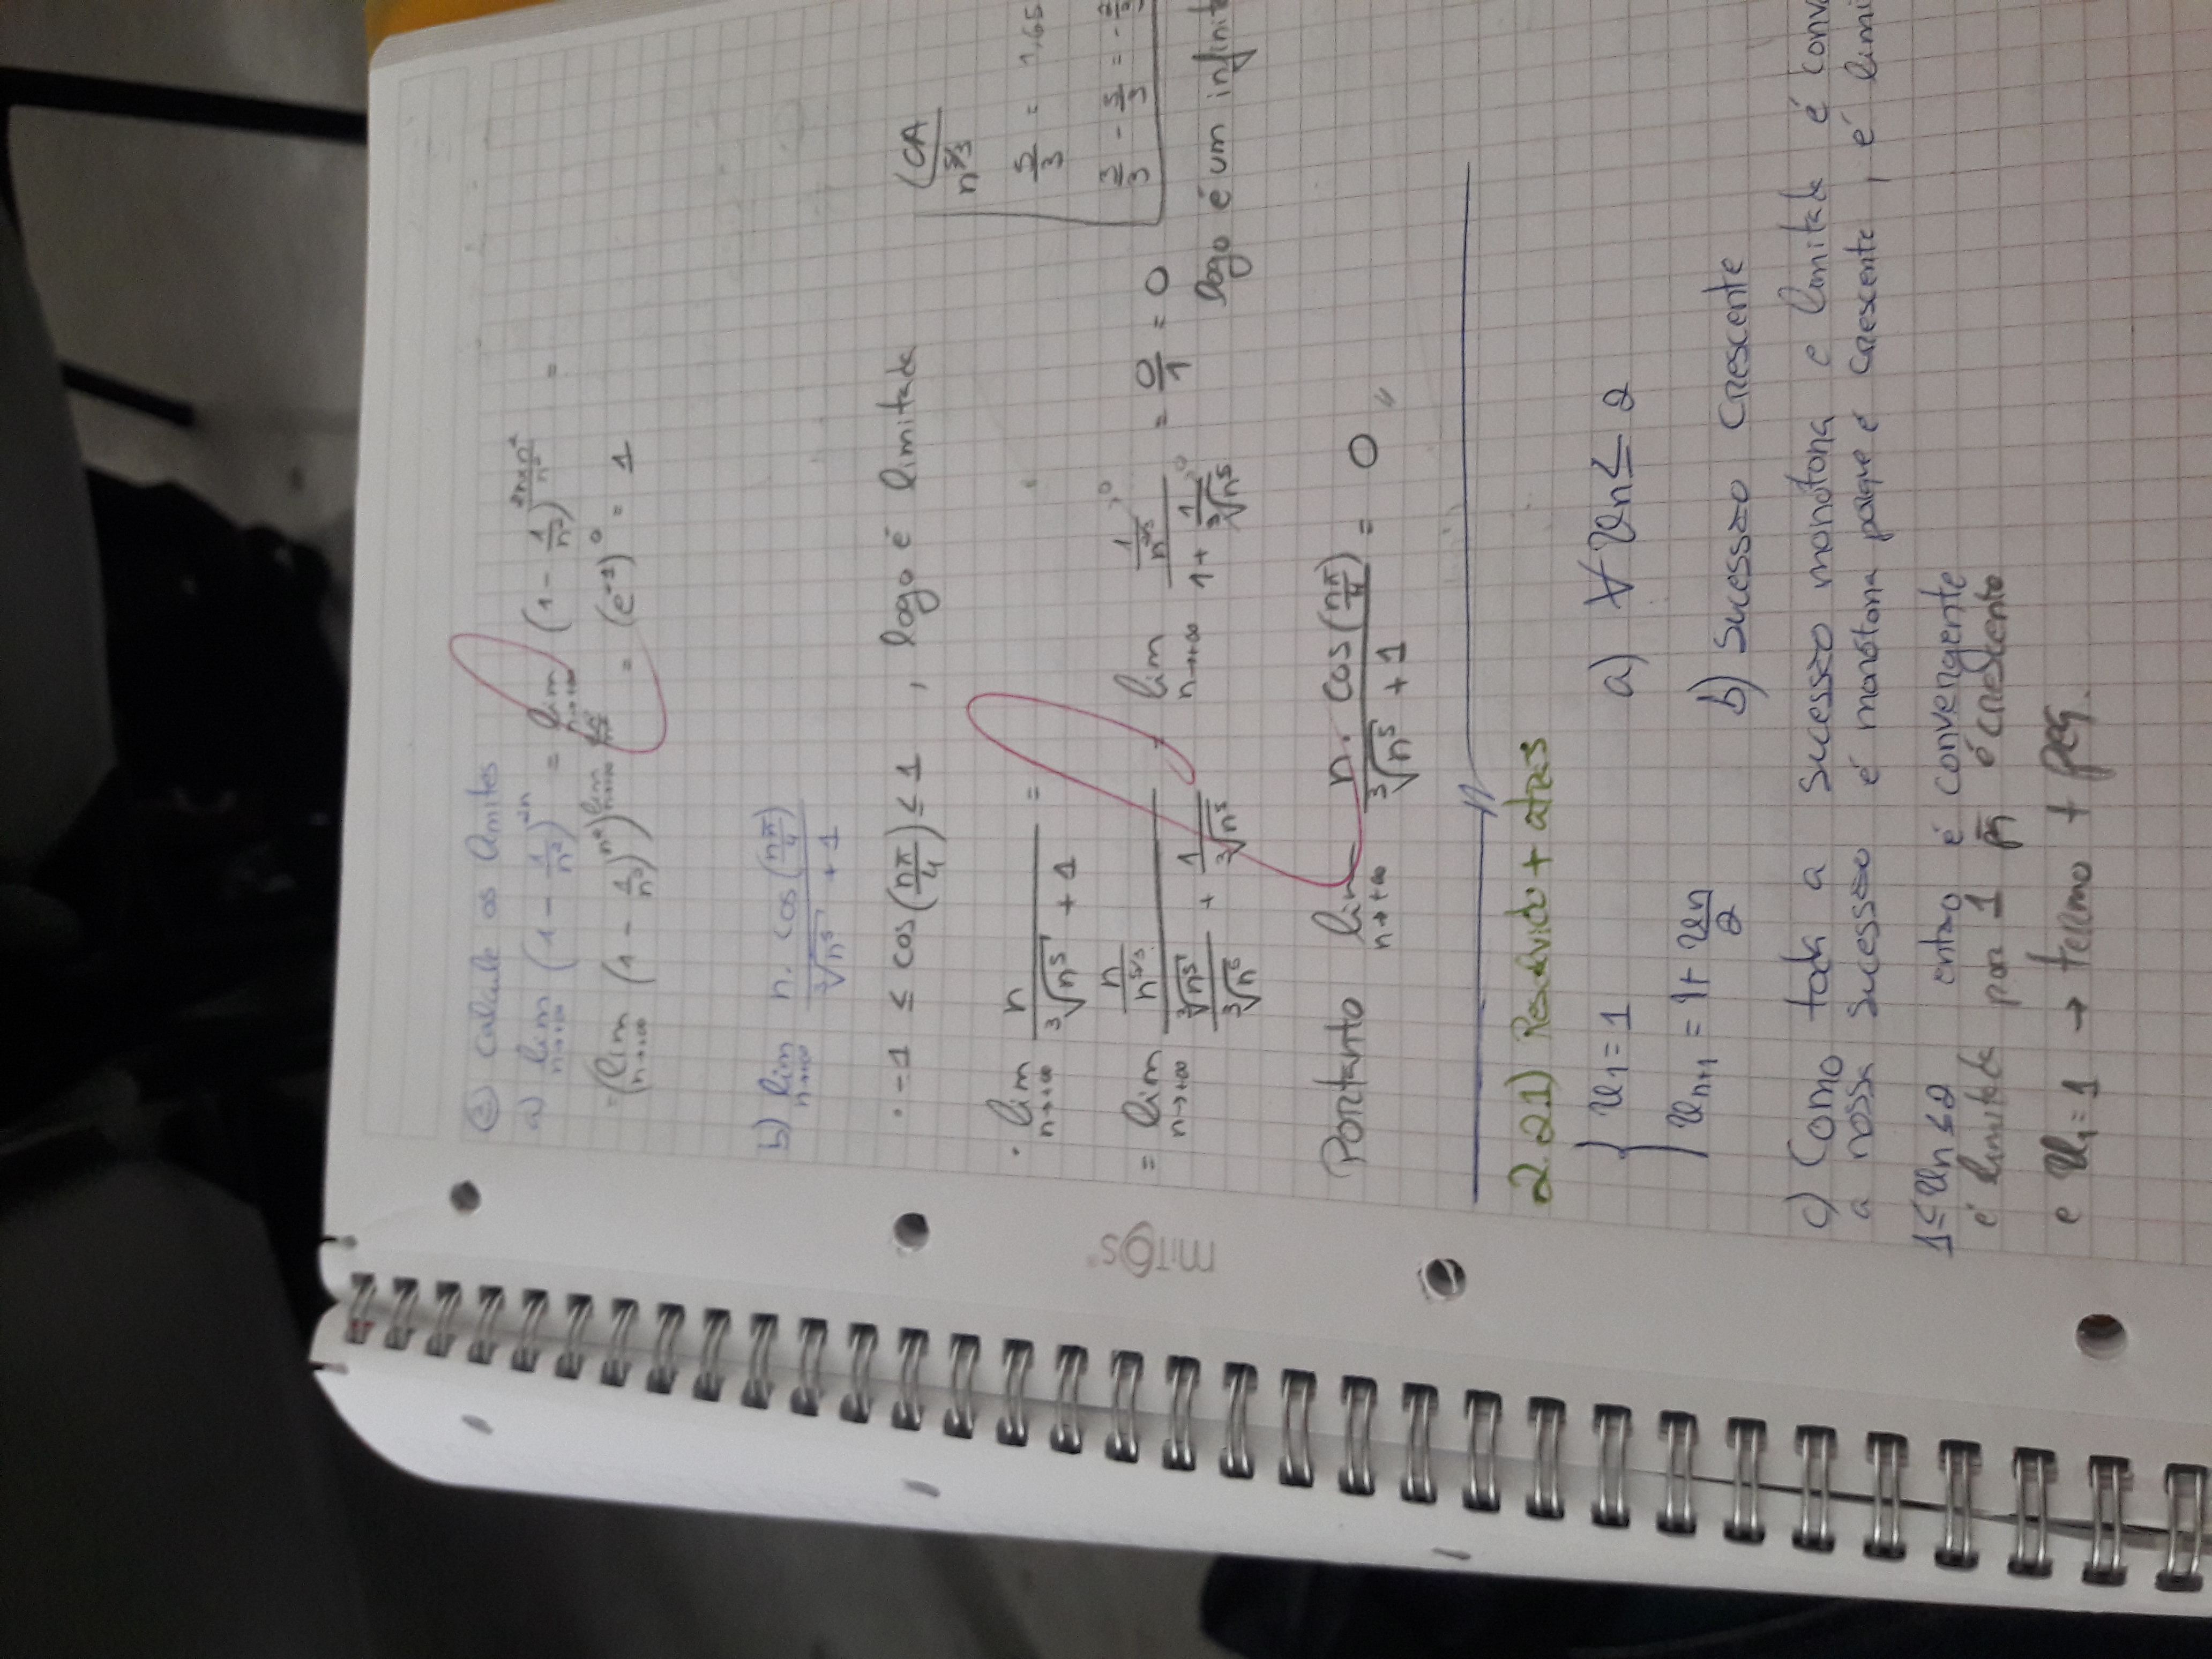 ② Calcule os limites
a) lim n→+∞ (1 - 1/n²)^2n = lim n→+∞ (1 - 1/n²)^(2n×n²/n²) =
= (lim n→+∞ (1 - 1/n²)^n²)^lim n→+∞ 2n/n² = (e⁻¹)⁰ = 1
b) lim n→+∞ n. cos(nπ/4) / ³√n⁵ + 1
• -1 ≤ cos(nπ/4) ≤ 1 , logo é limitada
(CA
n^5/3
5/3 = 1,65
3/3 - 5/3 = -
• lim n→+∞ n / ³√n⁵ + 1 =
= lim n→+∞ (n / n^5/3) / (³√n⁵ / ³√n⁵ + 1 / ³√n⁵) = lim n→+∞ (1 / n^2/3 →0) / (1 + 1 / ³√n⁵ →0) = 0/1 = 0
logo é um infinit
Portanto lim n→+∞ n. cos(nπ/4) / ³√n⁵ + 1 = 0
mitos
2.21) Resolvido + atrás
{ u₁ = 1
a) ∀ un ≤ 2
un+1 = 1 + un/2
b) Sucessão crescente
c) Como toda a sucessão monótona e limitada é conv
a nossa sucessão é monótona porque é crescente, é limi
1 ≤ un ≤ 2 então é convergente
é limitada por 1 pq é crescente
e u₁ = 1 → termo + peq.